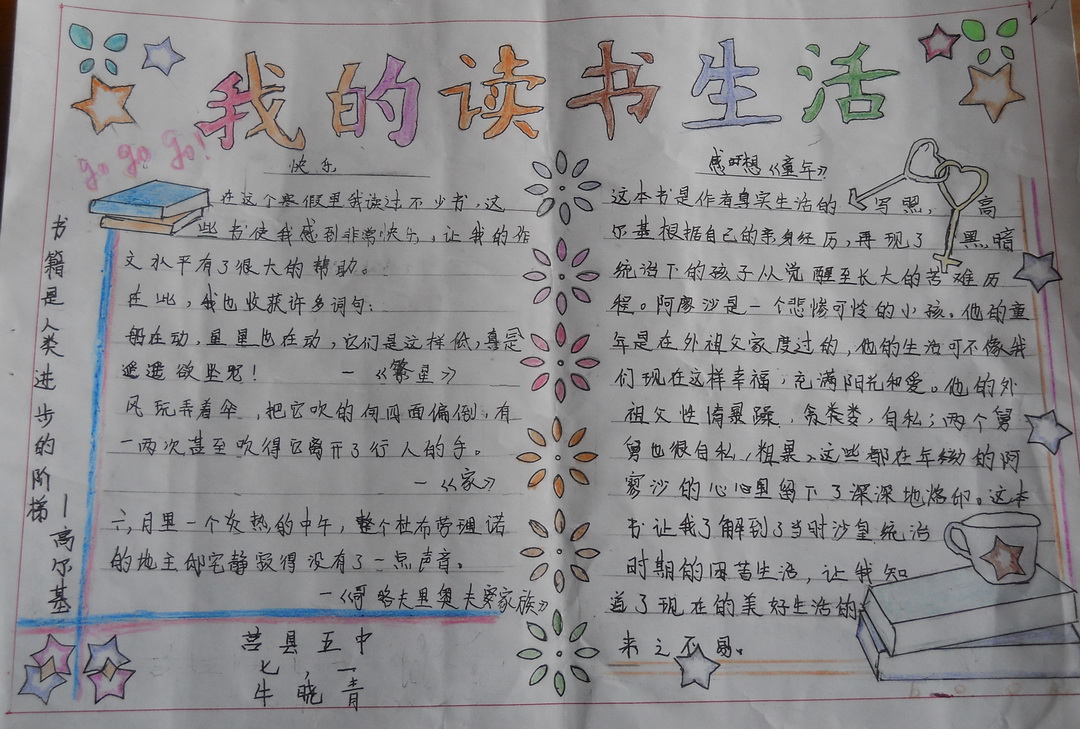 我的读书生活
go go go!
书籍是人类进步的阶梯
—高尔基
快乐
在这个寒假里我读过不少书,这
些书使我感到非常快乐,让我的作
文水平有了很大的帮助。
在此,我也收获许多词句:
船在动,星星也在动,它们是这样低,真是
遥遥欲坠呢! — 《繁星》
风玩弄着伞,把它吹的向四面偏倒,有
一两次甚至吹得它离开了行人的手。
—《家》
六月里一个炎热的中午,整个杜布劳理诺
的地主邸宅静寂得没有了一点声音。
—《哥略夫里奥夫家族》
莒县五中
七,一
牛晓青
感想《童年》
这本书是作者真实生活的写照,高
尔基根据自己的亲身经历,再现了黑暗
统治下的孩子从觉醒至长大的苦难历
程。阿廖沙是一个悲惨可怜的小孩。他的童
年是在外祖父家度过的,他的生活可不像我
们现在这样幸福,充满阳光和爱。他的外
祖父性情暴躁,贪类娄,自私;两个舅
舅也很自私,粗暴、这些都在年幼的阿
廖沙的心心里留下了深深地烙印。这本
书让我了解到了当时沙皇统治
时期的困苦生活,让我知
道了现在的美好生活的
来之不易。